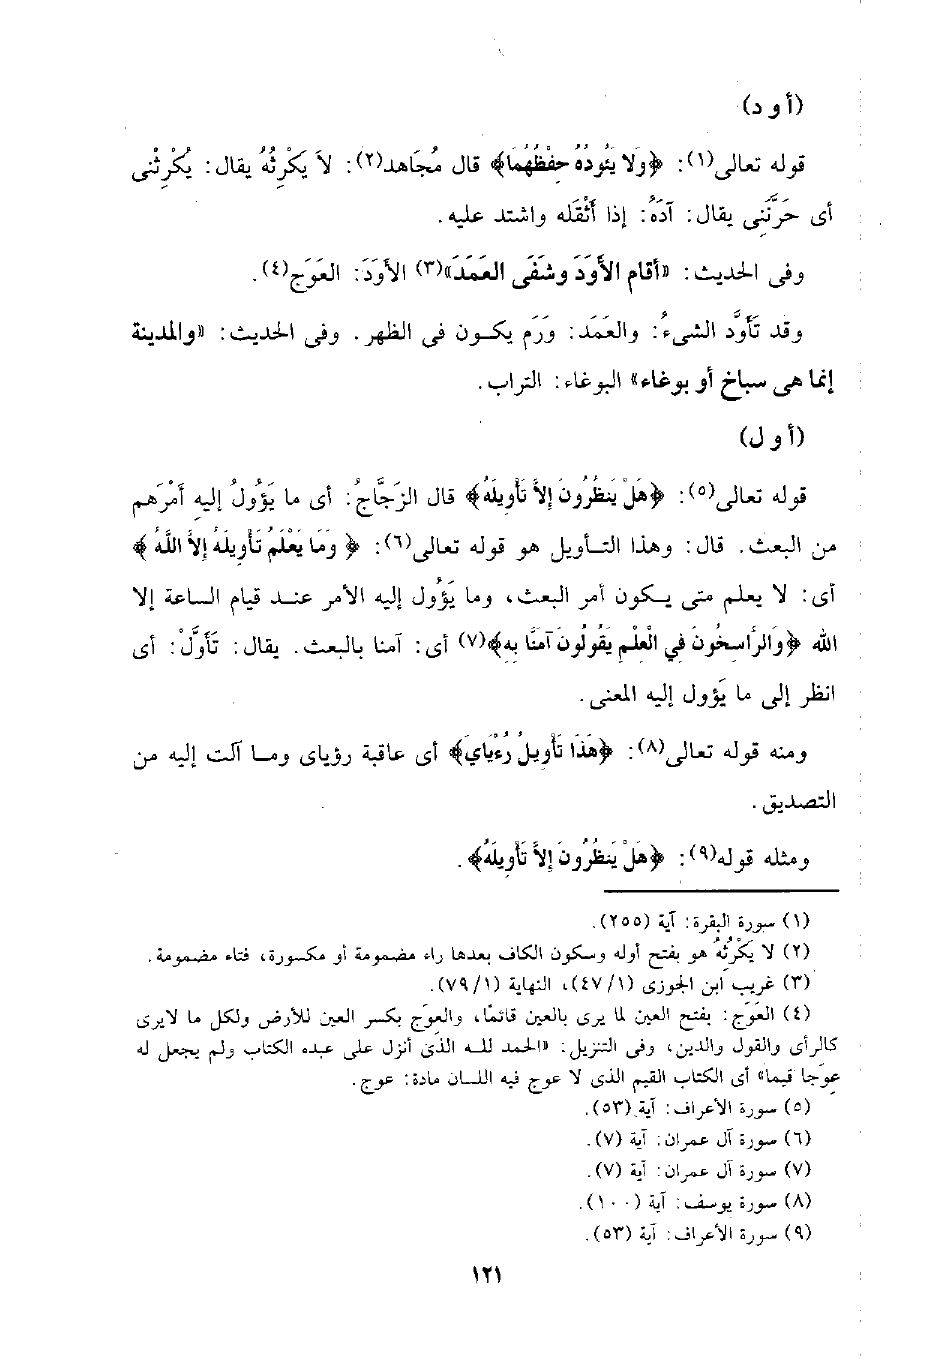 (أود)
قوله تعالى(١): ﴿وَلا يَئُودُهُ حِفْظُهُمَا﴾ قال مُجَاهد(٢): لاَ يَكْرِثُهُ يقال: يُكْرِثْنى
أى حَرَّنَنِى يقال: آدَهُ: إذا أَثْقَله واشتد عليه.
وفى الحديث: «أقام الأَوَدَ وشَفَى العَمَدَ»(٣) الأَوَدَ: العَوَج(٤).
وقد تَأَوَّد الشىءُ: والعَمَد: وَرَم يكون فى الظهر. وفى الحديث: «والمدينة
إنما هى سباخ أو بوغاء» البوغاء: التراب.
(أول)
قوله تعالى(٥): ﴿هَلْ يَنظُرُونَ إِلاَّ تَأْوِيلَهُ﴾ قال الزَجَّاجُ: أى ما يَؤُولُ إليه أمْرَهم
من البعث. قال: وهذا التأويل هو قوله تعالى(٦): ﴿وَمَا يَعْلَمُ تَأْوِيلَهُ إِلاَّ اللَّهُ﴾
أى: لا يعلم متى يكون أمر البعث، وما يَؤُول إليه الأمر عند قيام الساعة إلا
الله ﴿وَالرَّاسِخُونَ فِي الْعِلْمِ يَقُولُونَ آمَنَّا بِهِ﴾(٧) أى: آمنا بالبعث. يقال: تَأَوَّلْ: أى
انظر إلى ما يَؤول إليه المعنى.
ومنه قوله تعالى(٨): ﴿هَذَا تَأْوِيلُ رُءْيَايَ﴾ أى عاقبة رؤياى وما آلت إليه من
التصديق.
ومثله قوله(٩): ﴿هَلْ يَنظُرُونَ إِلاَّ تَأْوِيلَهُ﴾.
(١) سورة البقرة: آية (٢٥٥).
(٢) لا يَكْرُثِهُ هو بفتح أوله وسكون الكاف بعدها راء مضمومة أو مكسورة، فتاء مضمومة.
(٣) غريب ابن الجوزى (٤٧/١)، النهاية (٧٩/١).
(٤) العَوَج: بفتح العين لما يرى بالعين قائمًا، والعِوَج بكسر العين للأرض ولكل ما لايرى
كالرأى والقول والدين، وفى التنزيل: «الحمد لله الذى أنزل على عبده الكتاب ولم يجعل له
عِوَجا قيما» أى الكتاب القيم الذى لا عوج فيه اللسان مادة: عوج.
(٥) سورة الأعراف: آية (٥٣).
(٦) سورة آل عمران: آية (٧).
(٧) سورة آل عمران: آية (٧).
(٨) سورة يوسف: آية (١٠٠).
(٩) سورة الأعراف: آية (٥٣).
١٢١